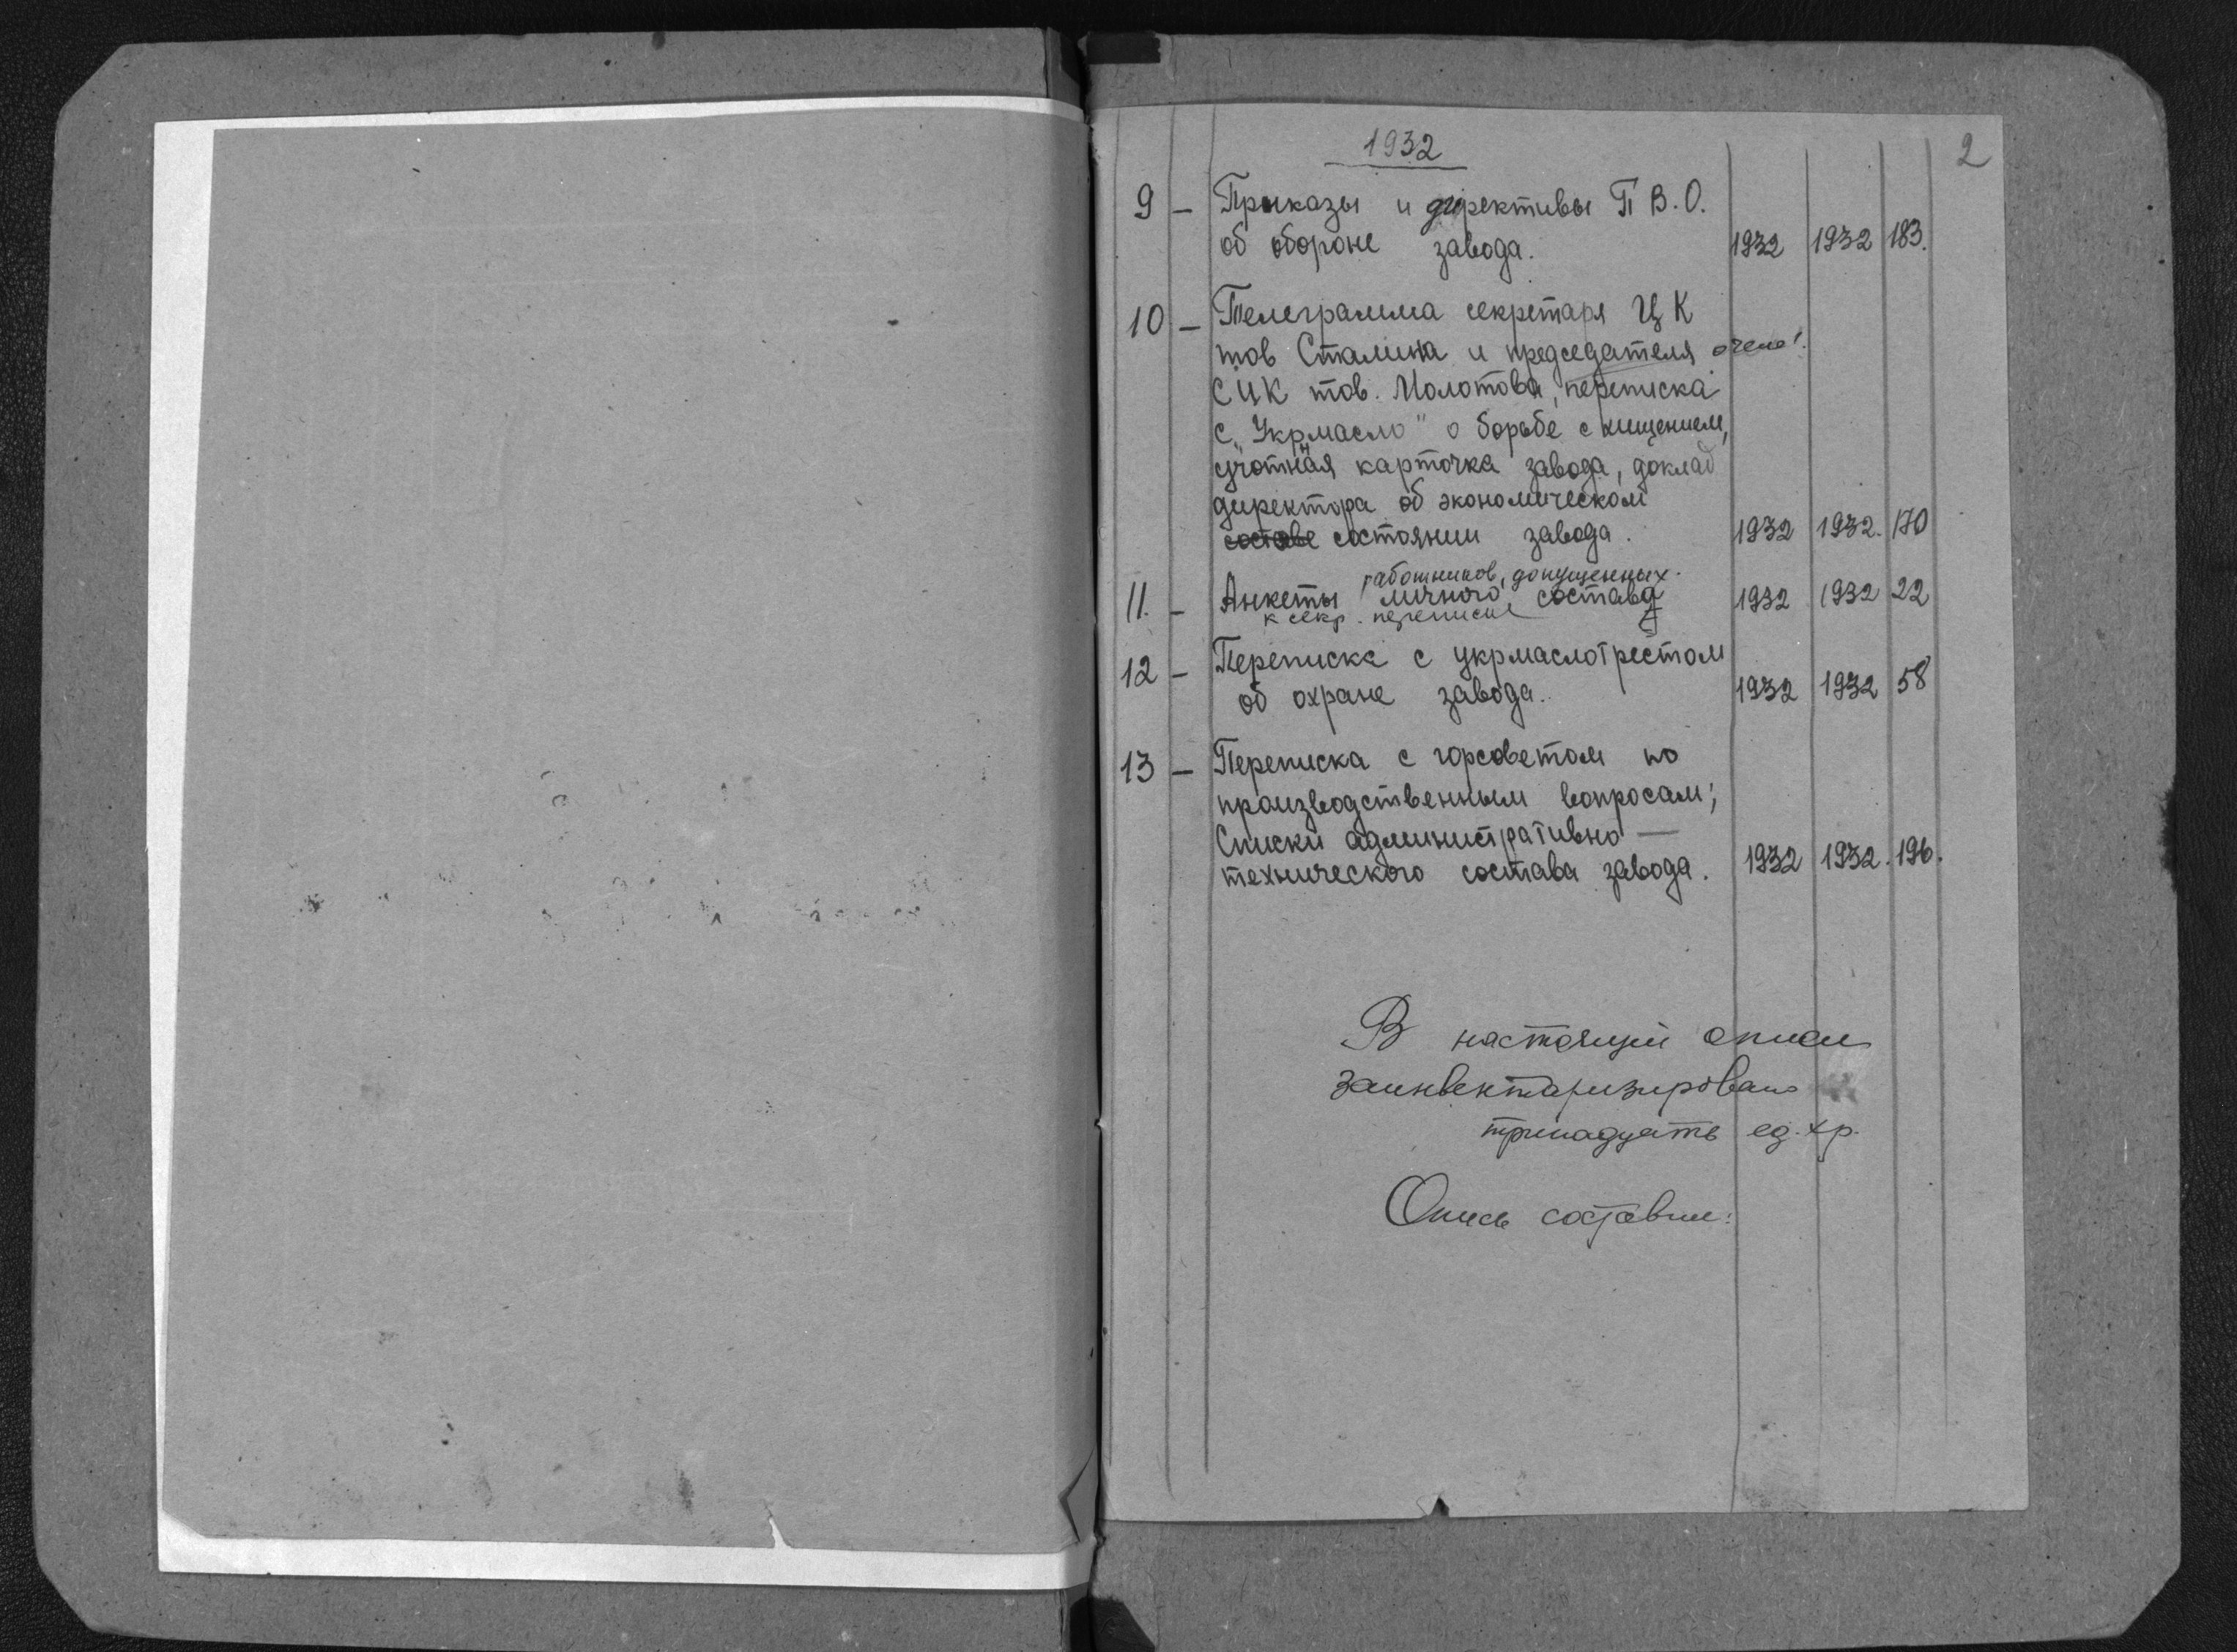 2
1932
9 — Приказы и директивы П В.О.
об обороне завода. 1932 1932 183.
10 — Телеграмма секретаря ЦК
тов Сталина и председателя
СЦК тов. Молотова, переписка
с „Укрмасло" о борьбе с хищением,
учотная карточка завода, доклад
директора об экономическом
составе состоянии завода. 1932 1932. 170
работников, допущенных
11. — Анкеты личного состава 1932 1932 22
к секр. переписке
12 — Переписка с укрмаслотрестом
об охране завода. 1932 1932 58
13 — Переписка с горсоветом по
производственным вопросам;
Списки административно —
технического состава завода. 1932 1932. 196.
В настоящей описи
заинвентаризировано
тринадцать ед. хр.
Опись составил: